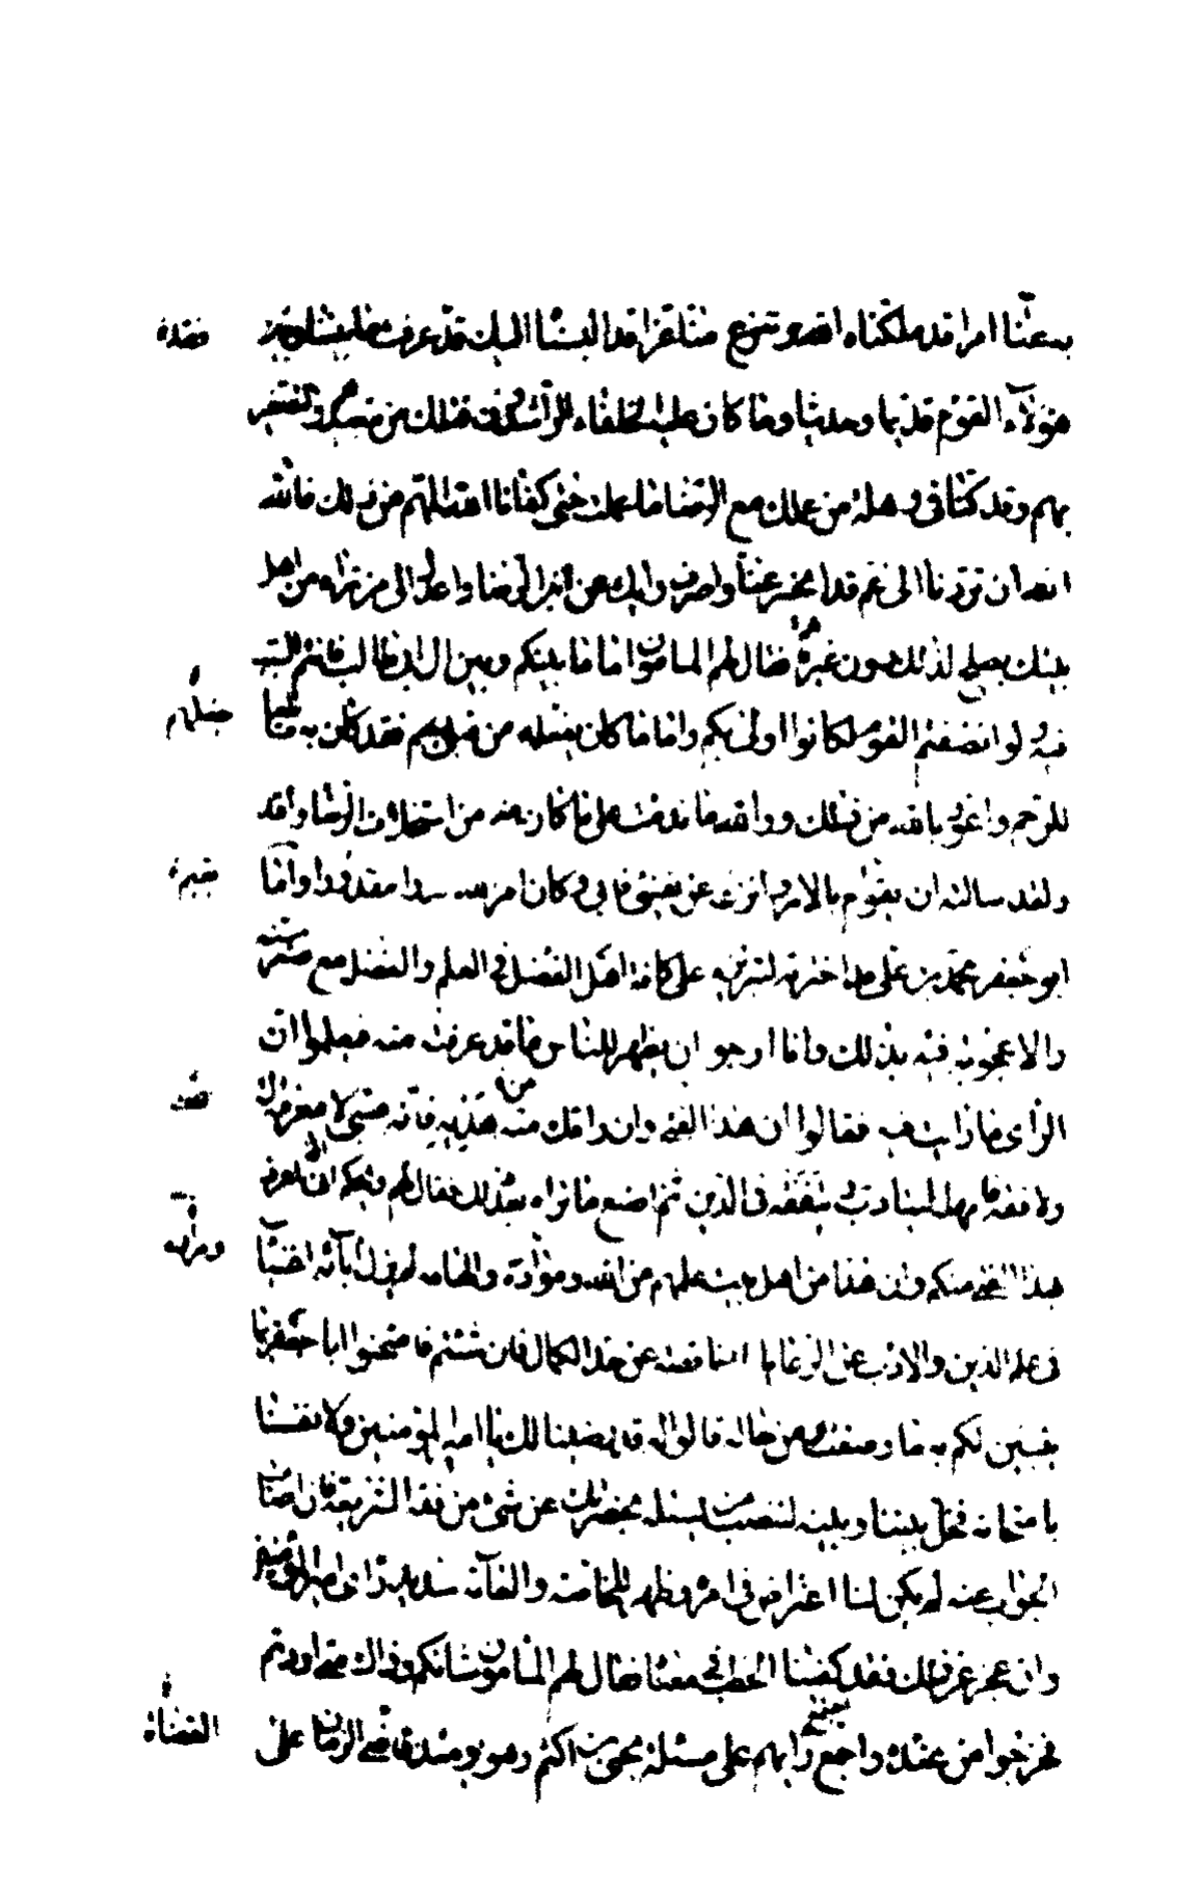 به عنا امرا قد ملكناه الله وتنزع منا عزا قد البسنا الله قد عرفت ما بيننا وبين
هؤلاء القوم قديما وحديثا وما كان عليه الخلفاء الراشدون قبلك من تبعيدهم والتصغير
بهم وقد كنا في وهلة من عملك مع الرضا ما عملت حتى كفانا الله المهم من ذلك فالله
الله ان تردنا الى غم قد انحسر عنا واصرف رايك عن ابن الرضا واعدل الى من تراه من اهل
بيتك يصلح لذلك دون غيره فقال لهم المأمون اما ما بينكم وبين آل ابي طالب فانتم السبب
فيه لو انصفتم القوم لكانوا اولى بكم واما ما كان يفعله من قبلي بهم فقد كان به قاطعا
للرحم واعوذ بالله من ذلك ووالله ما ندمت على ما كان منه من استخلاف الرضا ولقد
ولقد سالته ان يقوم بالامر وانزعه عن نفسي فابى وكان امر الله قدرا مقدورا واما
ابو جعفر محمد بن علي قد اخترته لتبريزه على كافة اهل الفضل في العلم والفضل مع صغر سنه
والاعجوبة فيه بذلك وانا ارجو ان يظهر للناس ما قد عرفت منه فيعلموا ان
الراى ما رايت فيه فقالوا ان هذا الفتى وان راقك منه هديه فانه صبي لا معرفة له
ولا فقه فامهله ليتادب ويتفقه في الدين ثم اصنع ما تراه بعد ذلك فقال لهم ويحكم انى اعرف
بهذا الفتى منكم وان هذا من اهل بيت علمهم من الله ومواده والهامه لم يزل آبائه اغنياء
في علم الدين والادب عن الرعايا الناقصة عن حد الكمال فان شئتم فامتحنوا ابا جعفر بما
يتبين لكم به ما وصفت من حاله قالوا له قد رضينا لك يا امير المؤمنين ولانفسنا
بامتحانه فخل بيننا وبينه لننصب من يسئله بحضرتك عن شئ من فقه الشريعة فان اصاب
الجواب عنه لم يكن لنا اعتراض في امره وظهر للخاصة والعامة سديد راى امير المؤمنين
وان عجز عن ذلك فقد كفينا الخطب في معناه فقال لهم المأمون شانكم وذاك متى اردتم
فخرجوا من عنده واجمع رايهم على مسئلة يحيى بن اكثم وهو يومئذ قاضي الزمان على